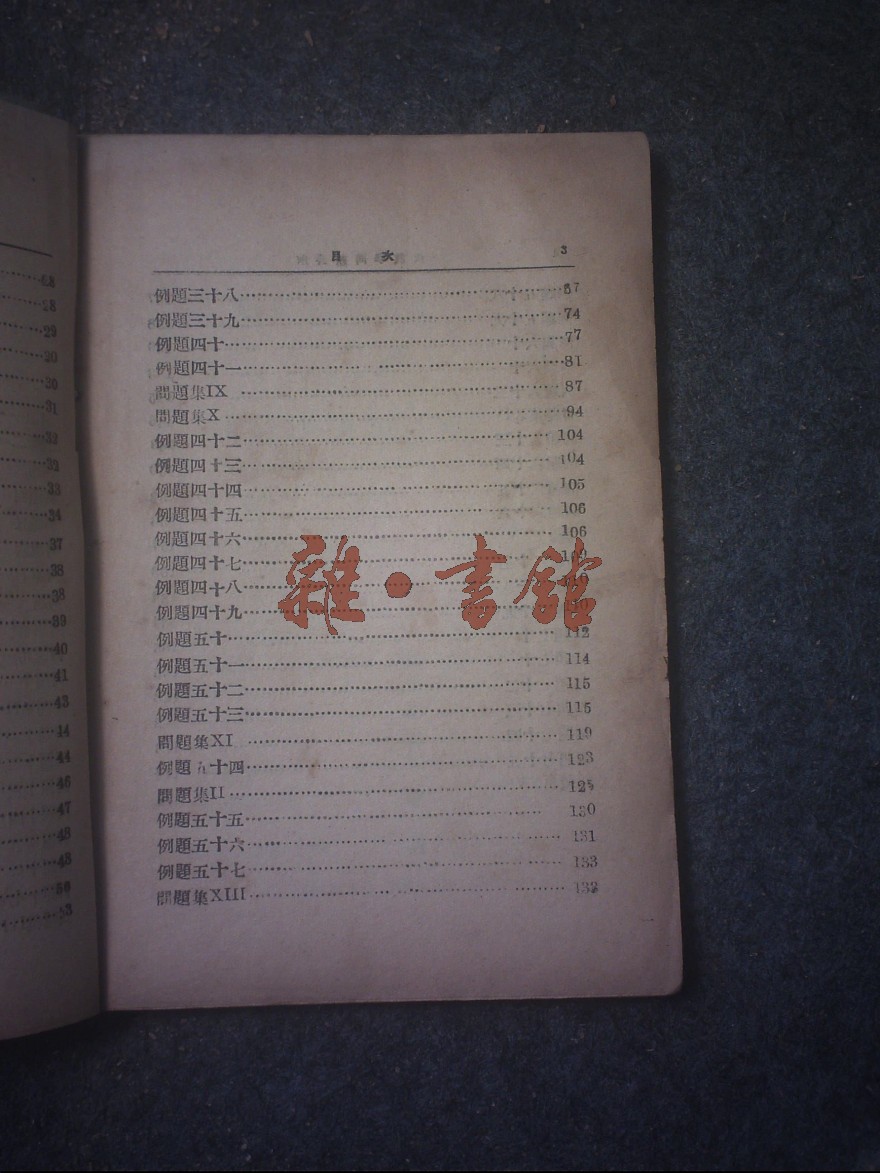 目 次 3
例題三十八 67
例題三十九 74
例題四十 77
例題四十一 81
問題集IX 87
問題集X 94
例題四十二 104
例題四十三 104
例題四十四 105
例題四十五 106
例題四十六 106
例題四十七
例題四十八
例題四十九
例題五十 112
例題五十一 114
例題五十二 115
例題五十三 115
問題集XI 119
例題五十四 123
問題集II 125
例題五十五 130
例題五十六 131
例題五十七 133
問題集XIII 132
雜·書館
28
29
30
30
31
32
32
33
34
37
38
38
39
40
41
43
44
44
46
47
48
48
50
53